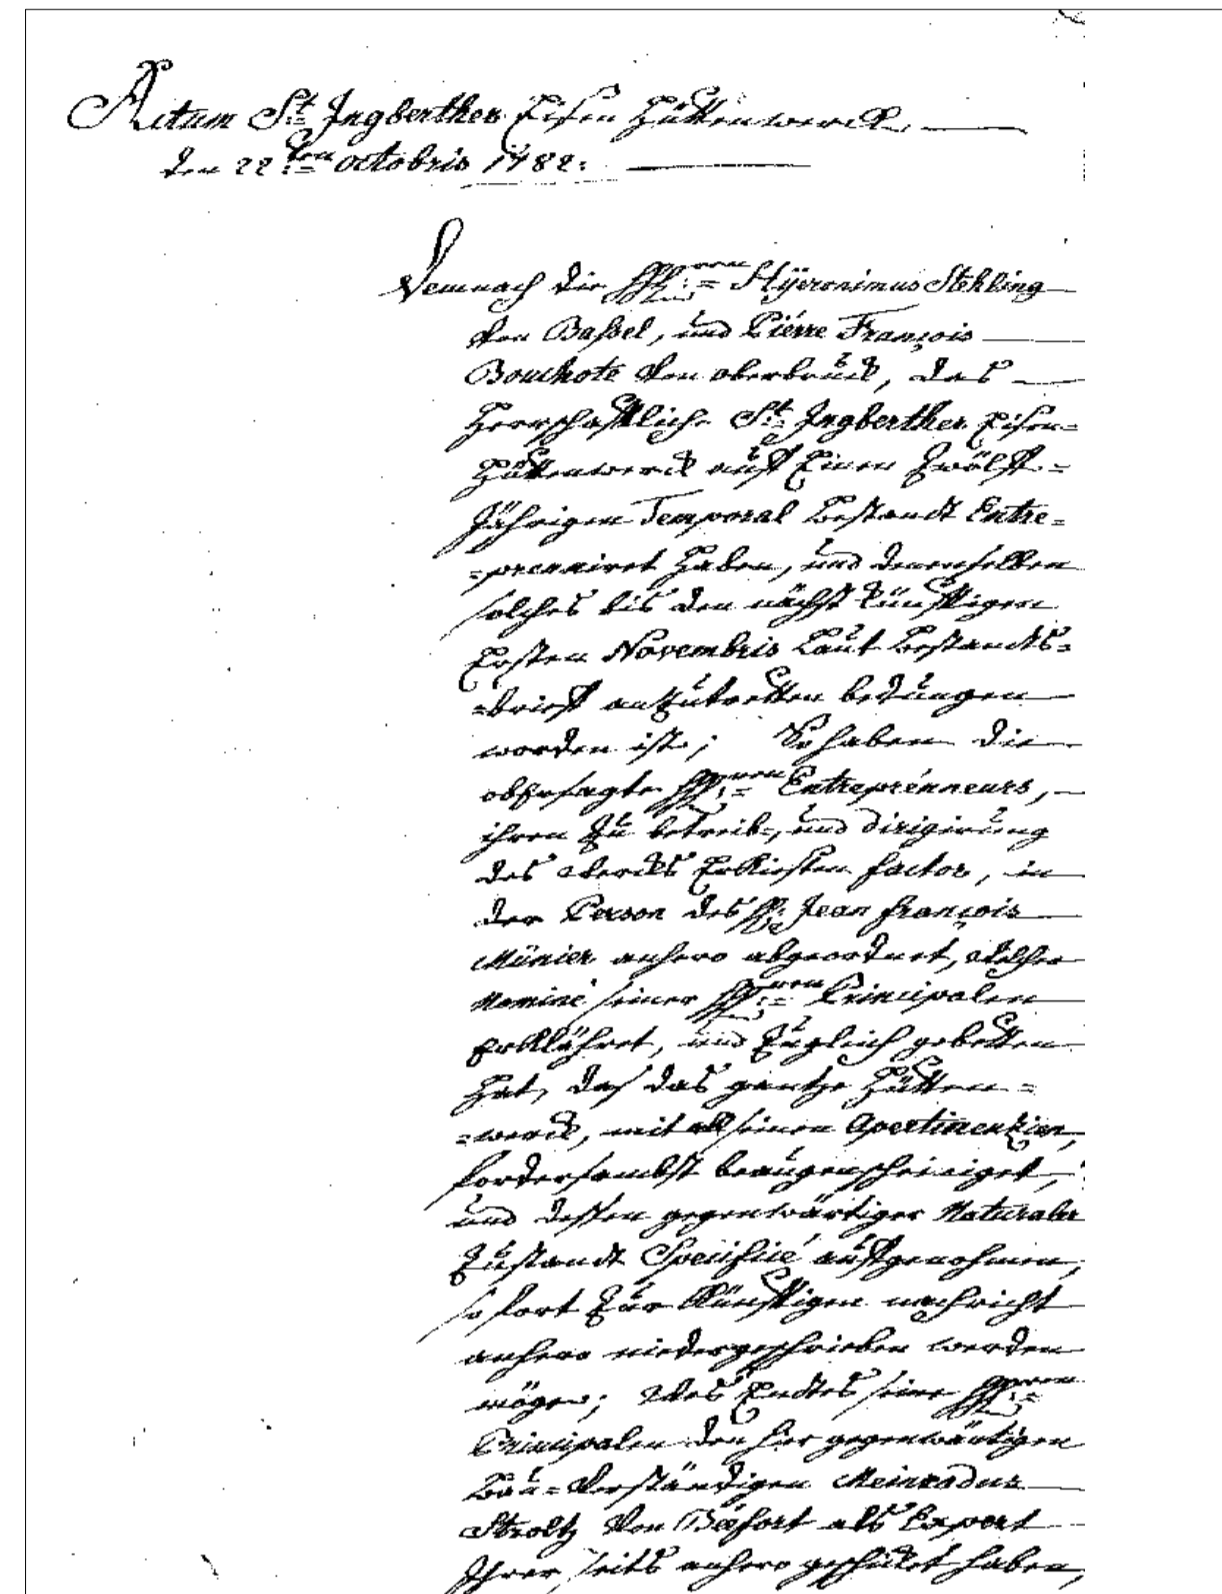 Actum St. Ingberther Eisen Hüttenwerck
den 22ten octobris 1782:
Demnach die HH: rren Hÿeronimus Stehling
von Bassel, und Piérre François
Bouchote von oberbruck, das
Herrschafftliche St. Ingberther Eisen=
Hüttenwerck auff Einen Zwölff=
Jährigen Temporal bestandt Entre=
=preniret haben, und denenselben
solches bis den nächst künfftigen
Ersten Novembris laut bestandts=
=brieff anzutretten bedungen
worden ist; So haben die
obbesagte HH: rren Entreprénneurs,
ihren zu betreib=, und dirigirung
des wercks Erkiesten factor, in
der Person des H: Jean françois
Münier anhero abgeordnet, welcher
Nominé seiner HH: rren Principalen
Erklähret, und zugleich gebetten
hat, das das gantze Hütten=
=werck, mit all seinen Apertinenzien,
fordersambst beaugenscheiniget,
und dessen gegenwärtiger Naturaler
Zustandt Specificé auffgenohmen,
so fort zur künfftigen nachricht
anhero niedergeschrieben werden
möge; Des Endtes seine HH: rren
Principalen den hier gegenwärtigen
bau=verständigen Meinradus
Stroltz von Béfort als Expert
Ihrer seits anhero geschicket haben,